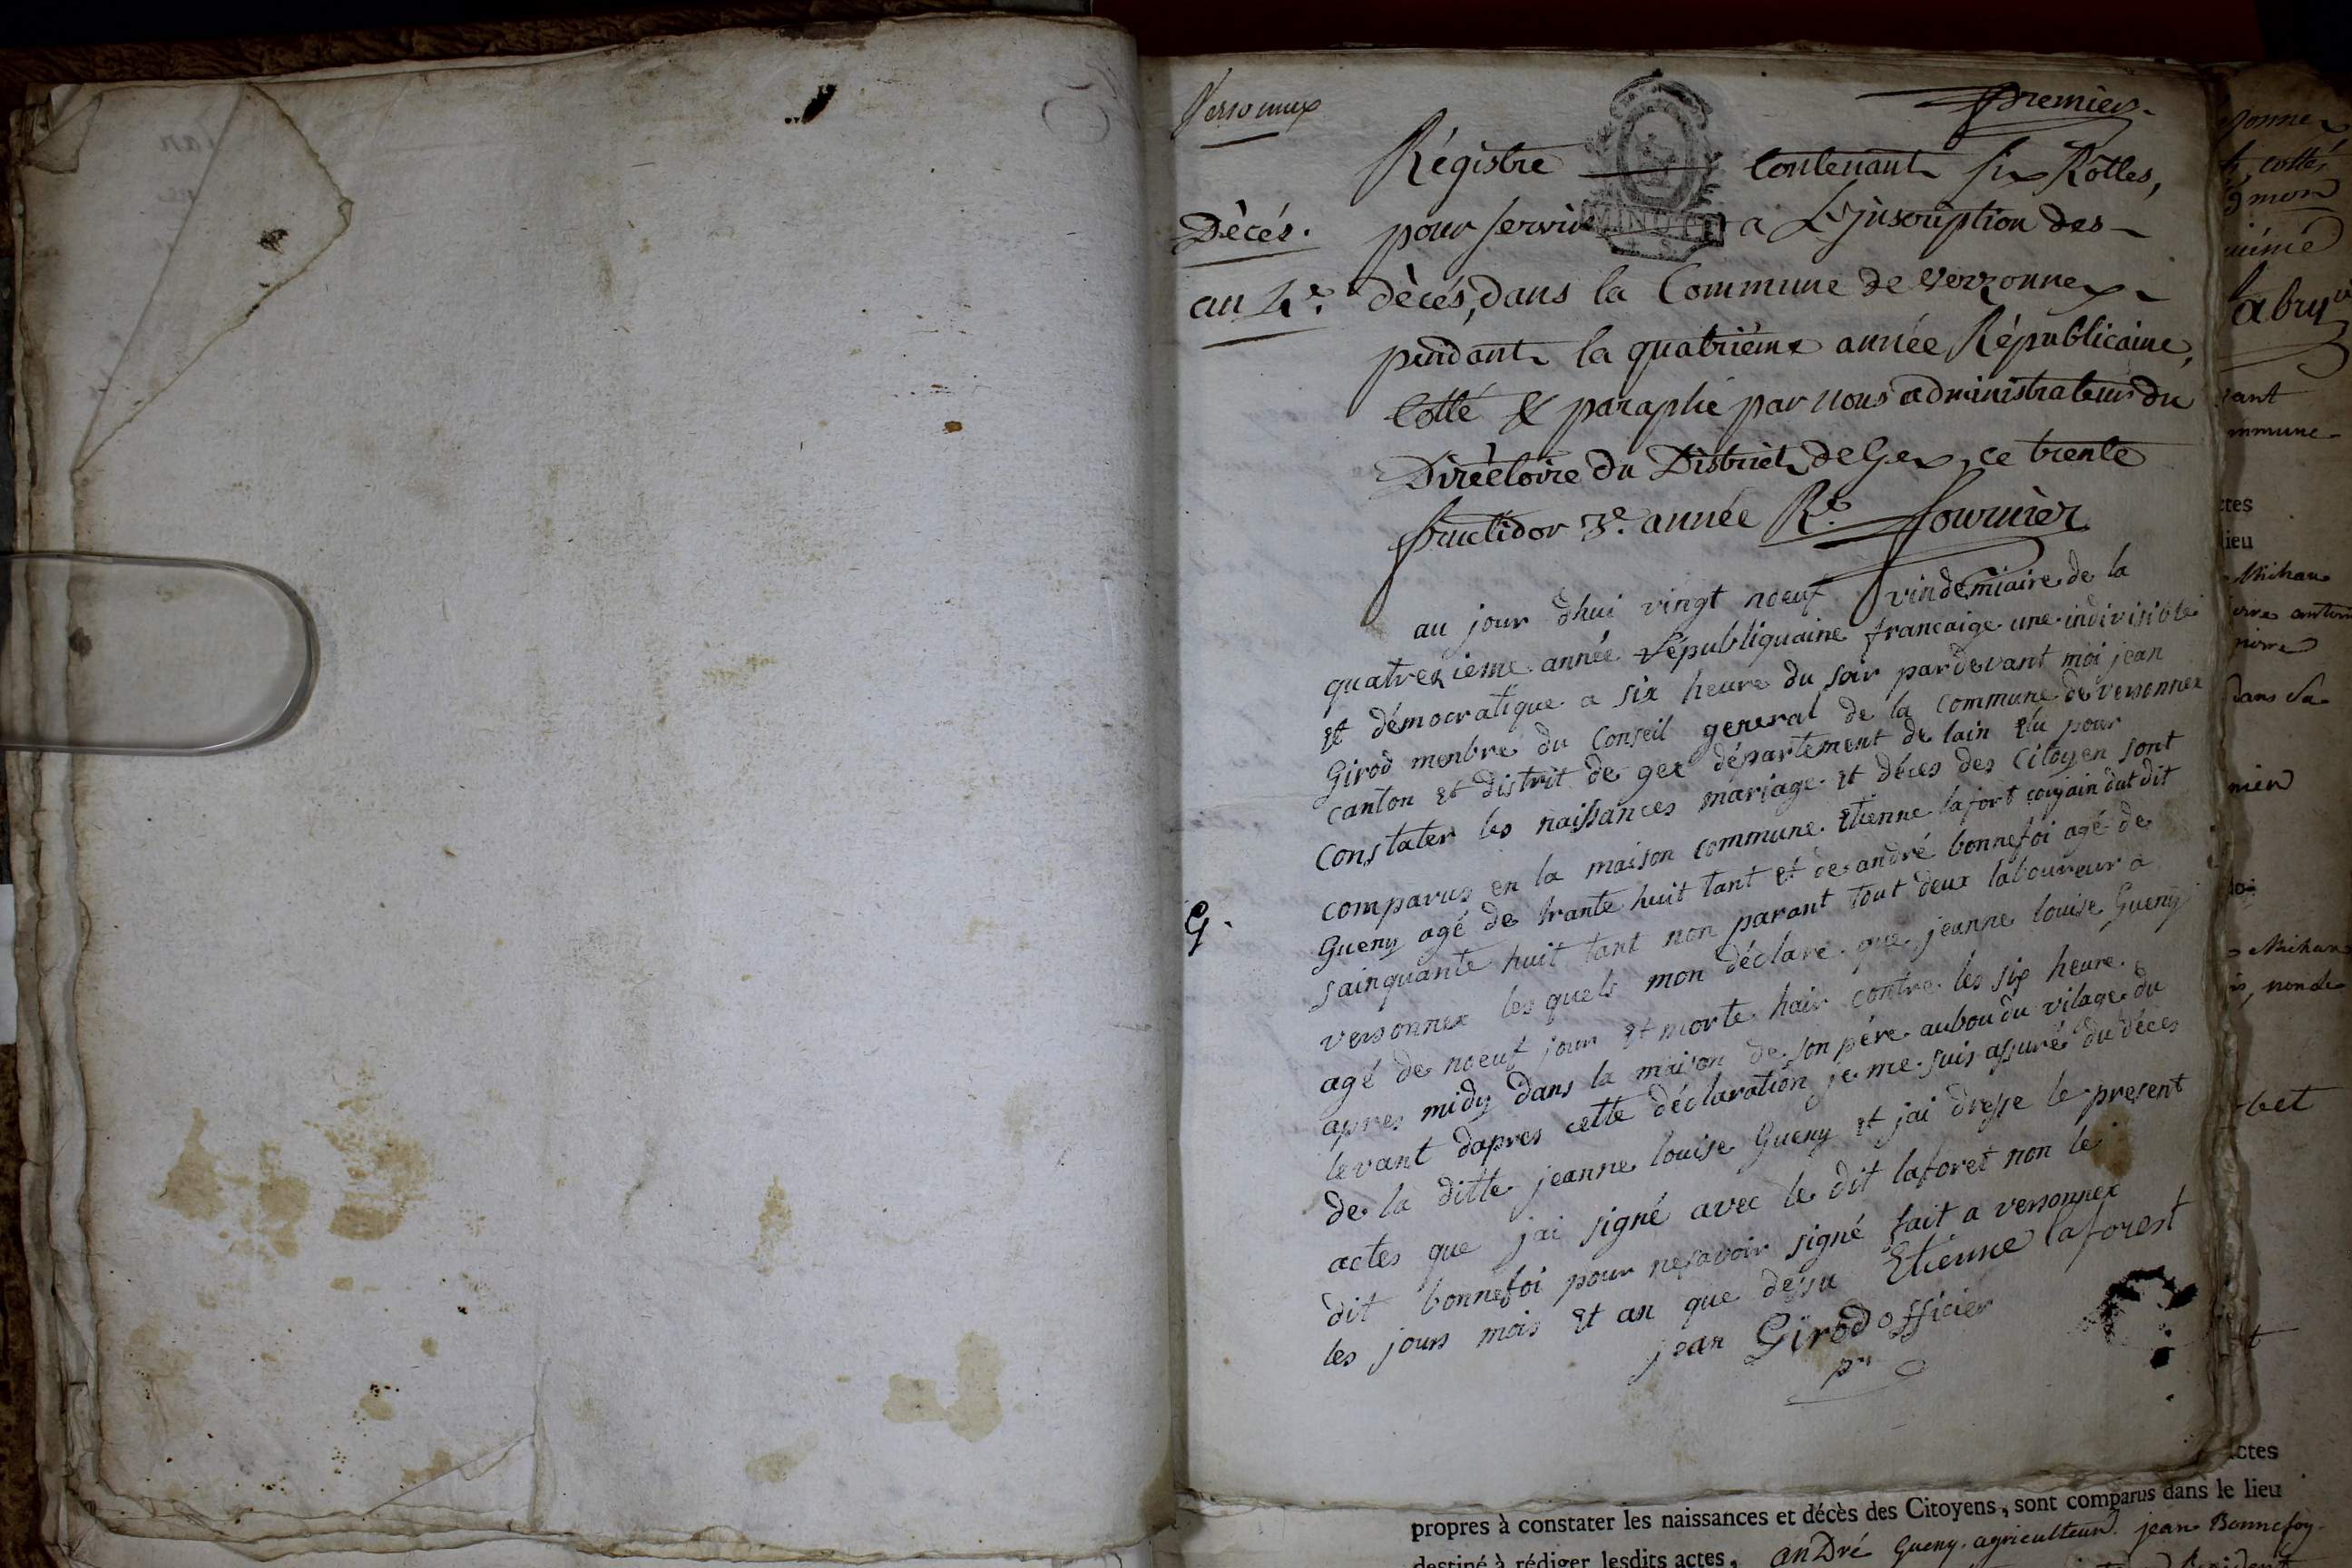 Versonnex
premier
Régistre contenant six Rolles,
Décés. pour servir a L'jnscription des
an 4e. décés, dans la Commune de Versonnex
pendant la quatriéme année Républicaine,
Cotté & paraphé par nous administrateurs du
Diréctoire du District de Gex, ce trente
fructidor 3e. année Re. fournier
MINUTE
au jour dhui vingt noeuf vindemiaire de la
quatrezieme année républiquaine francaige une indivisible
et démocratique a six heure du soir pardevant moi jean
Girod menbre du Conseil general de la Commune de versonnex
canton et distrit de gex département de lain élu pour
Constater les naissances mariage et déces des Citoyen sont
comparus en la maison commune Etienne lafort
Gueny agé de trante huit tant et de andré bonnefoi agé de
sainquante huit tant non parant tout deux laboureur a
G.
versonnex les quels mon déclare que jeanne louise Gueny
agé de noeuf jour et morte hair contre les six heure
apres midy dans la maison de son pére aubou du vilage du
levant dapres cette déclaration je me suis assuré du déces
de la ditte jeanne louise Gueny et jai dresse le present
actes que jai signé avec le dit laforet non le
dit bonnefoi pour nesavoir signé fait a versonnex
les jours mois et an que dessu Etienne laforest
jean Girod officier
pu
onnex
cottés
abry
vant
mmune
ctes
lieu
Michau
antoni
dans sa
nier
Michau
nonde
bet
actes
propres à constater les naissances et décès des Citoyens, sont comparus dans le lieu
destiné à rédiger lesdits actes, anDré Gueny agriculteur jean Bonnefoy